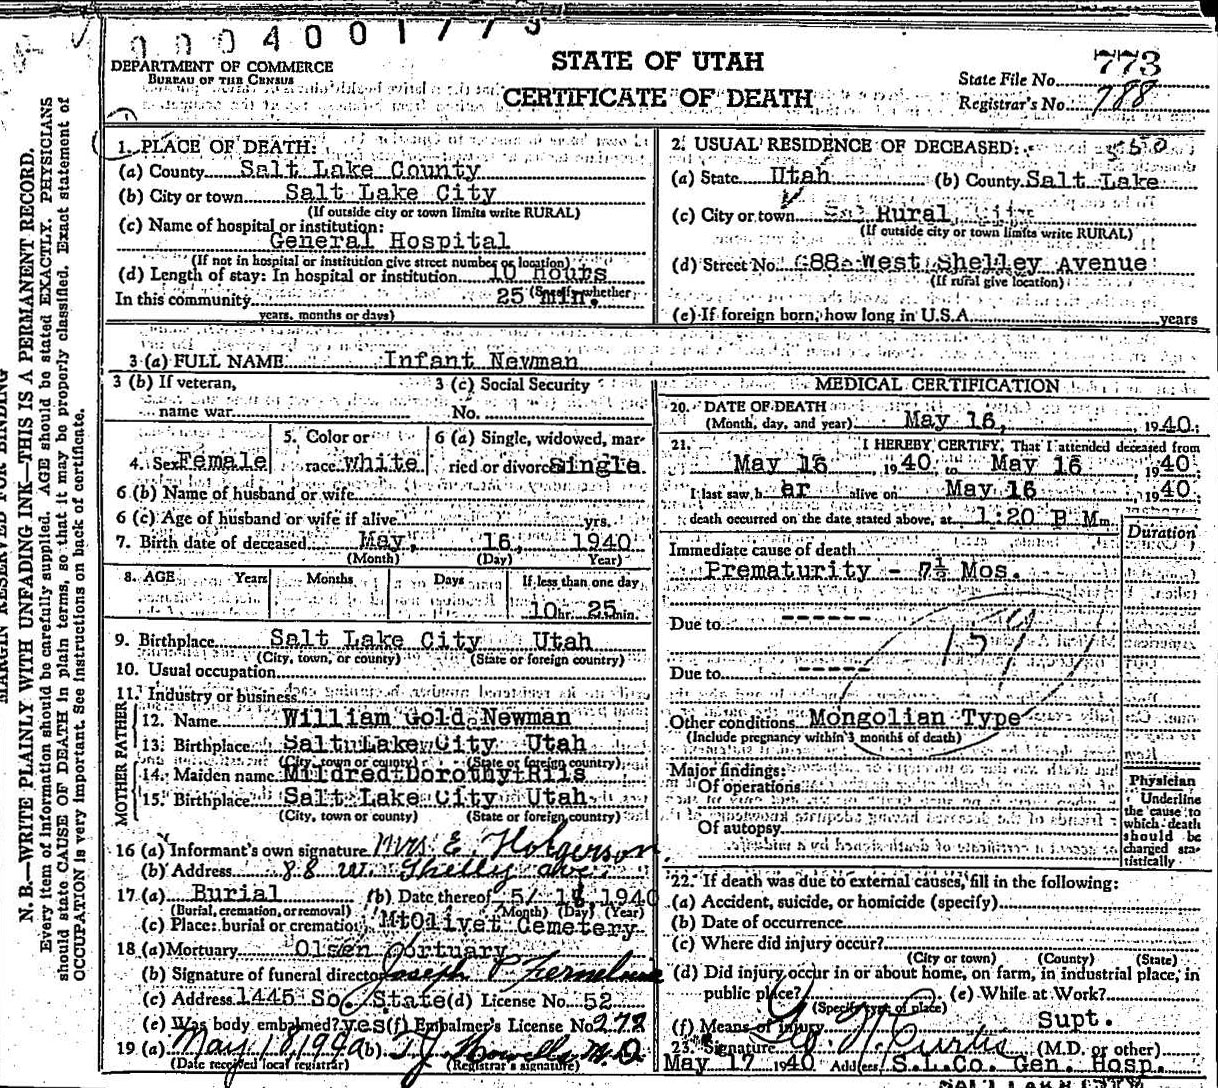 0004001773
DEPARTMENT OF COMMERCE
BUREAU OF THE CENSUS
STATE OF UTAH
CERTIFICATE OF DEATH
773
State File No.
Registrar's No. 788
MARGIN RESERVED FOR BINDING
N. B.—WRITE PLAINLY WITH UNFADING INK—THIS IS A PERMANENT RECORD.
Every item of information should be carefully supplied. AGE should be stated EXACTLY. PHYSICIANS
should state CAUSE OF DEATH in plain terms, so that it may be properly classified. Exact statement of
OCCUPATION is very important. See instructions on back of certificate.
1. PLACE OF DEATH:
(a) County Salt Lake County
(b) City or town Salt Lake City
(If outside city or town limits write RURAL)
(c) Name of hospital or institution:
General Hospital
(If not in hospital or institution give street number or location)
(d) Length of stay: In hospital or institution 10 hours
(Specify whether
In this community 25 min.
years, months or days)
2. USUAL RESIDENCE OF DECEASED:
(a) State Utah (b) County Salt Lake
(c) City or town Rural
(If outside city or town limits write RURAL)
(d) Street No. 88 West Shelley Avenue
(If rural give location)
(e) If foreign born, how long in U.S.A. years
3 (a) FULL NAME Infant Newman
3 (b) If veteran,
name war
3 (c) Social Security
No.
4. Sex Female
5. Color or
race white
6 (a) Single, widowed, mar-
ried or divorced single
6 (b) Name of husband or wife
6 (c) Age of husband or wife if alive yrs.
7. Birth date of deceased May, 16, 1940
(Month) (Day) Year)
8. AGE Years Months Days If less than one day
10 hr. 25 min.
9. Birthplace Salt Lake City Utah
(City, town, or county) (State or foreign country)
10. Usual occupation
11. Industry or business
FATHER
12. Name William Gold Newman
13. Birthplace Salt Lake City Utah
(City, town or county) (State or foreign country)
MOTHER
14. Maiden name Mildred Dorothy Riis
15. Birthplace Salt Lake City Utah
(City, town or county) (State or foreign country)
16 (a) Informant's own signature Mrs. E. Holgerson
(b) Address 88 W. Shelly ave.
17. (a) Burial (b) Date thereof 5/ 18, 1940
(Burial, cremation, or removal) (Month) (Day) (Year)
(c) Place: burial or cremation Mt Olivet Cemetery
18 (a) Mortuary Olsen Mortuary
(b) Signature of funeral director Joseph P
(c) Address 1445 So. State (d) License No. 52
(e) Was body embalmed? yes (f) Embalmer's License No. 272
19 (a) May 18, 1940 (b) T J Howells M.D
(Date received local registrar) (Registrar's signature)
MEDICAL CERTIFICATION
20. DATE OF DEATH
(Month, day, and year) May 16, 1940.
21. I HEREBY CERTIFY, That I attended deceased from
May 16 1940 to May 16 1940
I last saw h er alive on May 16, 1940
death occurred on the date stated above, at 1:20 P Mm
Duration
Immediate cause of death
Prematurity - 7½ Mos.
Due to ------
159
Due to -----
Other conditions Mongolian Type
(Include pregnancy within 3 months of death)
Major findings:
Of operations
Of autopsy
Physician
Underline
the cause to
which death
should be
charged sta-
tistically
22. If death was due to external causes, fill in the following:
(a) Accident, suicide, or homicide (specify)
(b) Date of occurrence
(c) Where did injury occur?
(City or town) (County) (State)
(d) Did injury occur in or about home, on farm, in industrial place, in
public place? (e) While at Work?
(Specify type of place)
(f) Means of injury Supt.
23. Signature Geo. N. Curtis (M.D. or other)
May 17 1940 Address S.L.Co. Gen. Hosp.